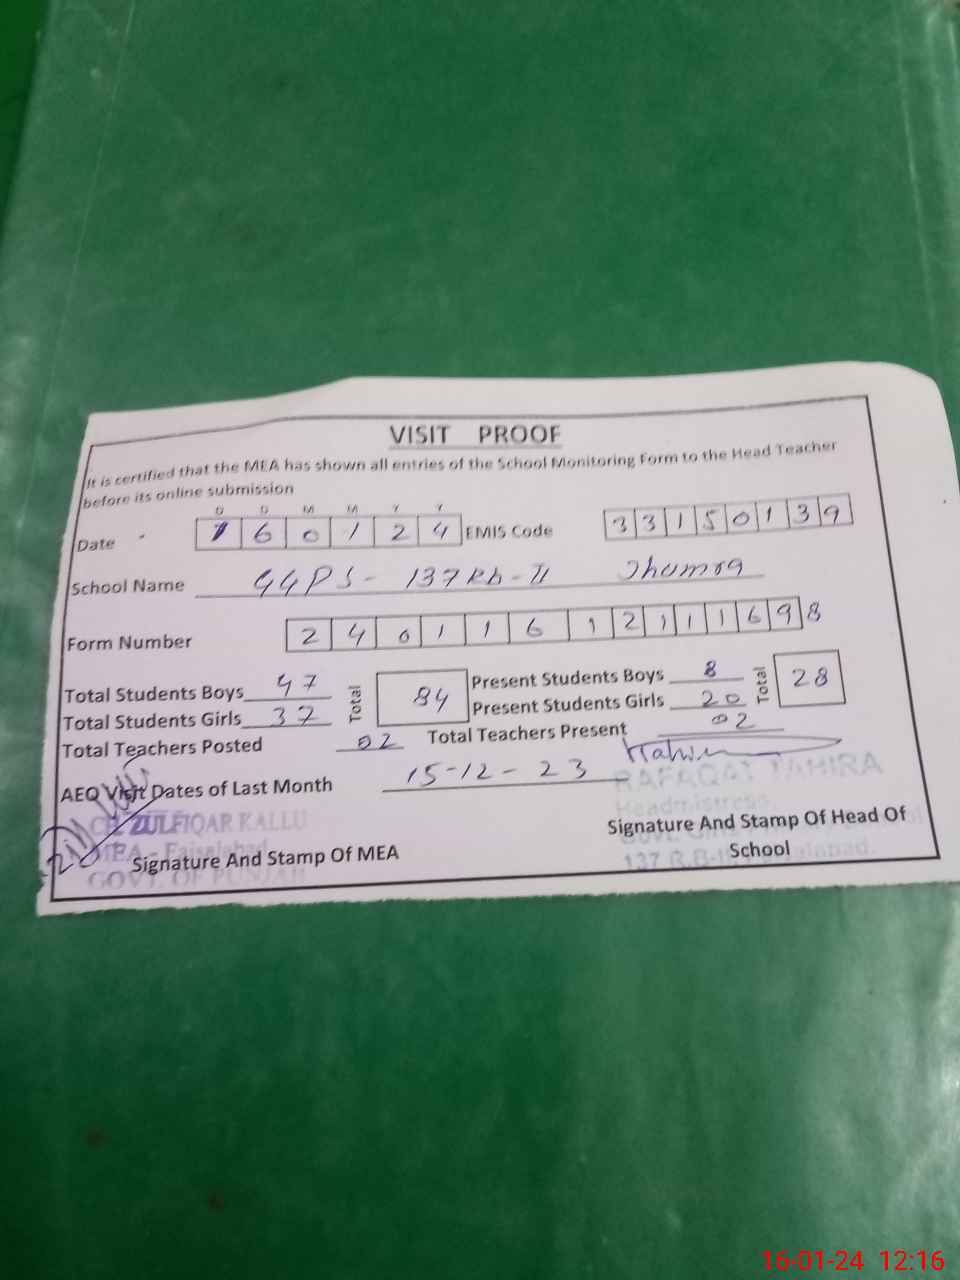 VISIT PROOF
It is certified that the MEA has shown all entries of the School Monitoring Form to the Head Teacher
before its online submission
D D M M Y Y
Date 1 6 0 1 2 4 EMIS Code 3 3 1 5 0 1 3 9
School Name GGPS- 137 Rb-II Jhumra
Form Number 2 4 0 1 1 6 1 2 1 1 1 6 9 8
Total Students Boys 47 Total 84 Present Students Boys 8 Total 28
Total Students Girls 37 Present Students Girls 20
Total Teachers Posted 02 Total Teachers Present 02
AEO Visit Dates of Last Month 15-12-23
RAFAQAT TAHIRA
Headmistress
CH. ZULFIQAR KALLU
MEA - Faisalabad
GOVT. OF PUNJAB
Signature And Stamp Of MEA
Signature And Stamp Of Head Of
School
137 R.B-II
16-01-24 12:16